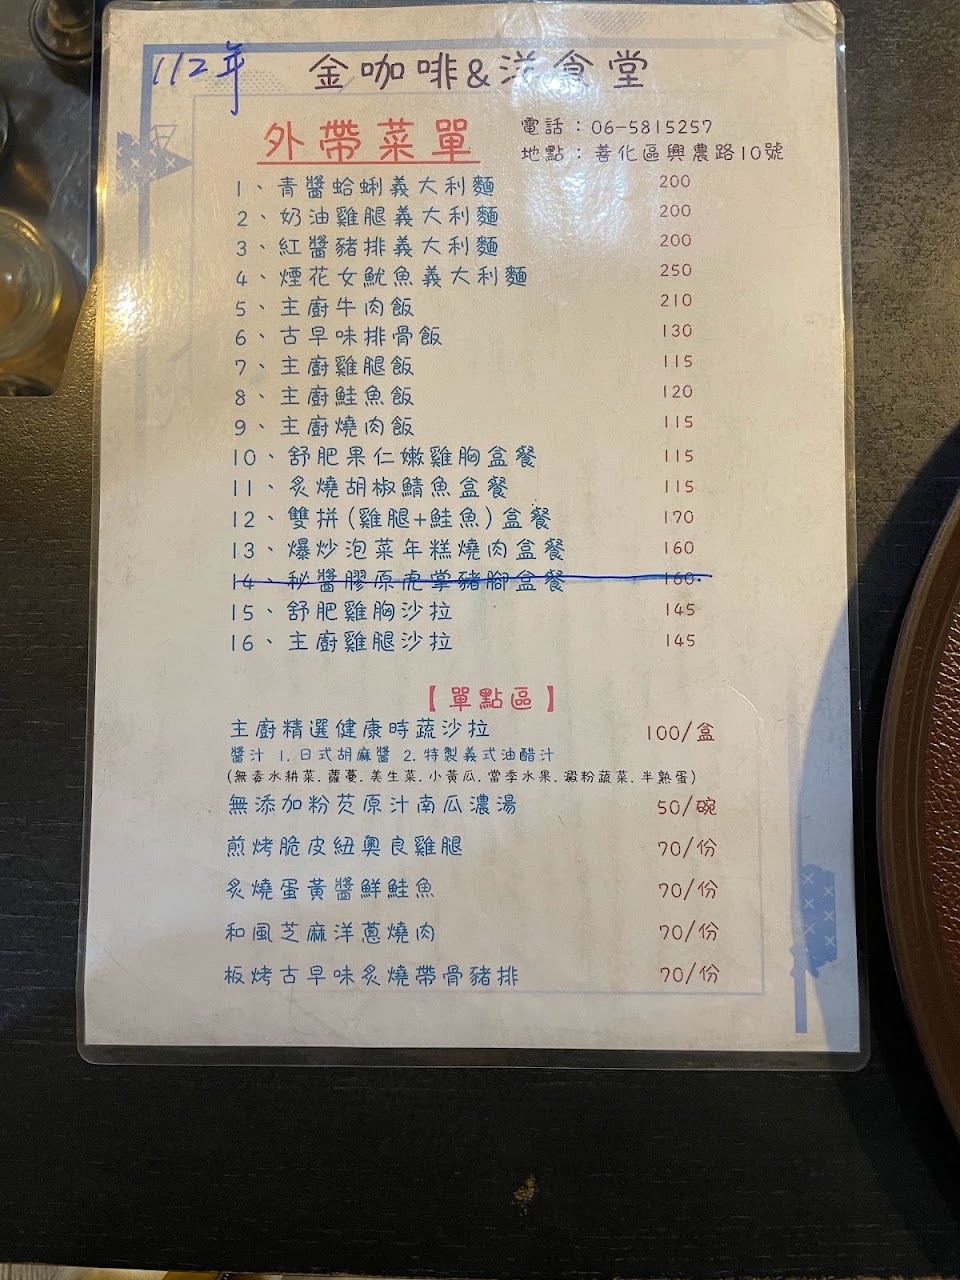 112年
金咖啡&洋食堂
外帶菜單
電話：06-5815257
地點：善化區興農路10號
1、青醬蛤蜊義大利麵 200
2、奶油雞腿義大利麵 200
3、紅醬豬排義大利麵 200
4、煙花女魷魚義大利麵 250
5、主廚牛肉飯 210
6、古早味排骨飯 130
7、主廚雞腿飯 115
8、主廚鮭魚飯 120
9、主廚燒肉飯 115
10、舒肥果仁嫩雞胸盒餐 115
11、炙燒胡椒鯖魚盒餐 115
12、雙拼(雞腿+鮭魚)盒餐 170
13、爆炒泡菜年糕燒肉盒餐 160
14、秘醬膠原虎掌豬腳盒餐 160
15、舒肥雞胸沙拉 145
16、主廚雞腿沙拉 145
【單點區】
主廚精選健康時蔬沙拉 100/盒
醬汁 1.日式胡麻醬 2.特製義式油醋汁
(無毒水耕菜.蘿蔓.美生菜.小黃瓜.當季水果.澱粉蔬菜.半熟蛋)
無添加粉芡原汁南瓜濃湯 50/碗
煎烤脆皮紐奧良雞腿 70/份
炙燒蛋黃醬鮮鮭魚 70/份
和風芝麻洋蔥燒肉 70/份
板烤古早味炙燒帶骨豬排 70/份